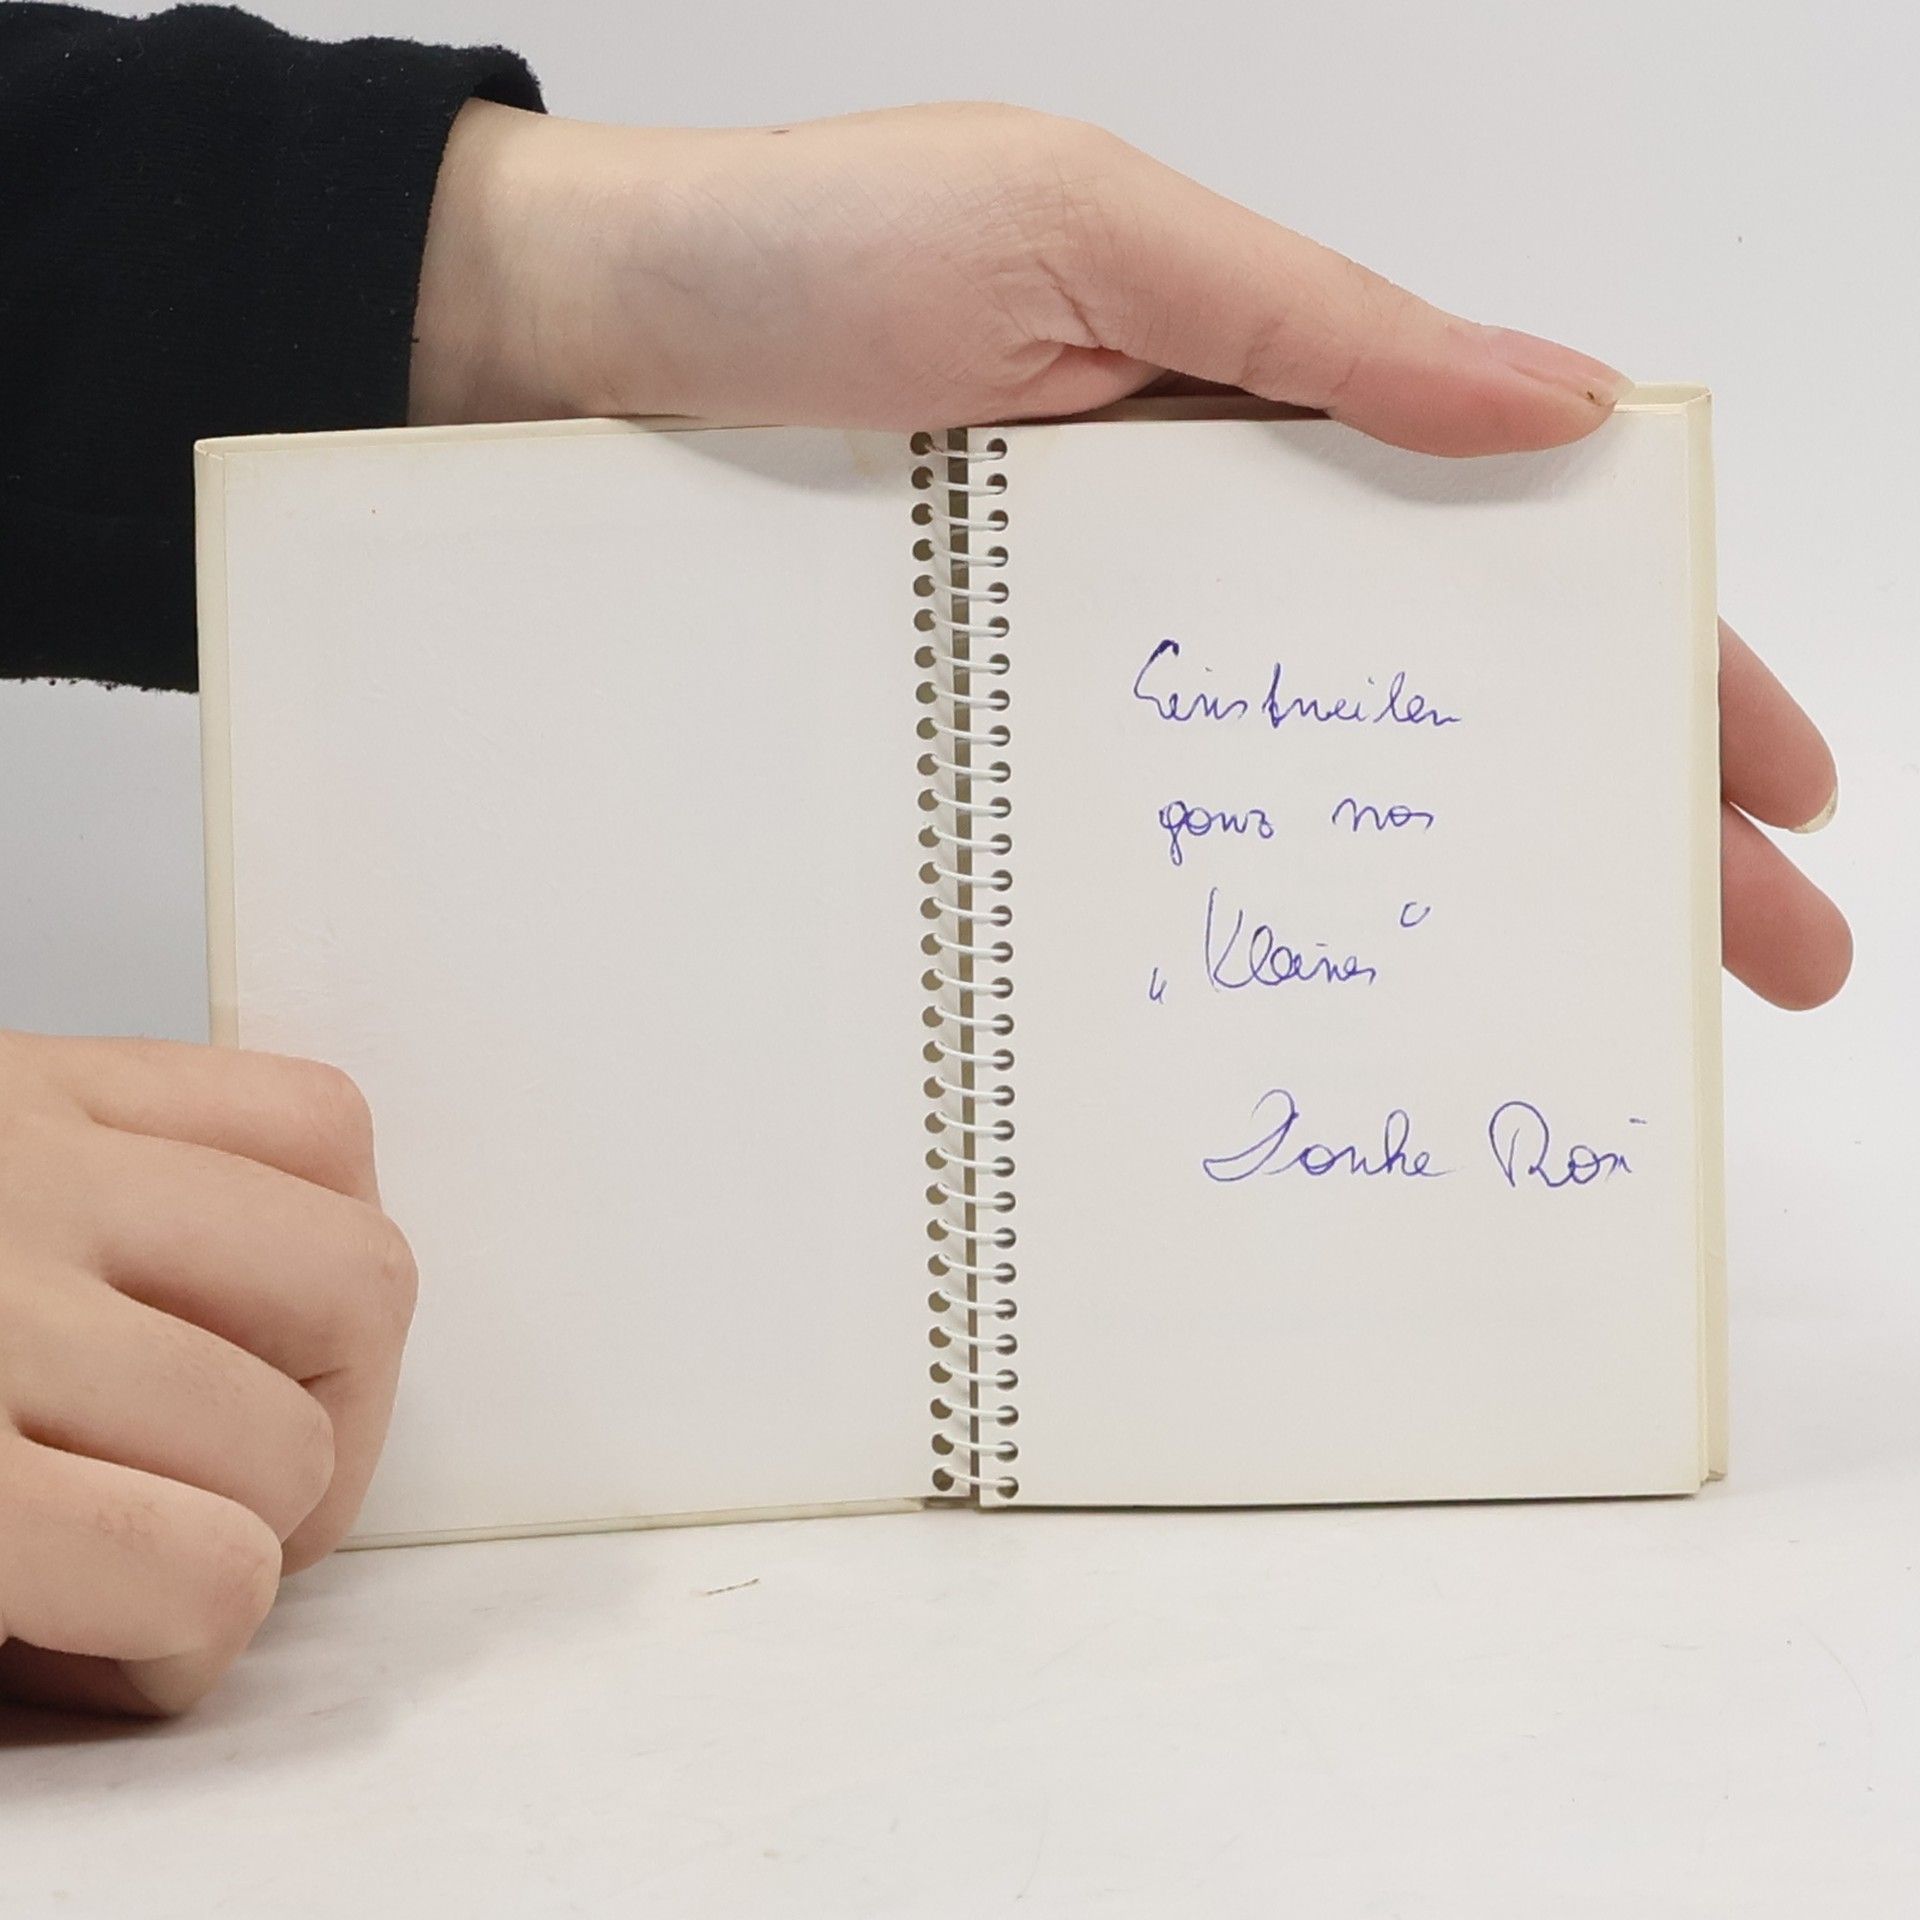 Einstweilen
ganz was
„Kleines“
Danke Rosi